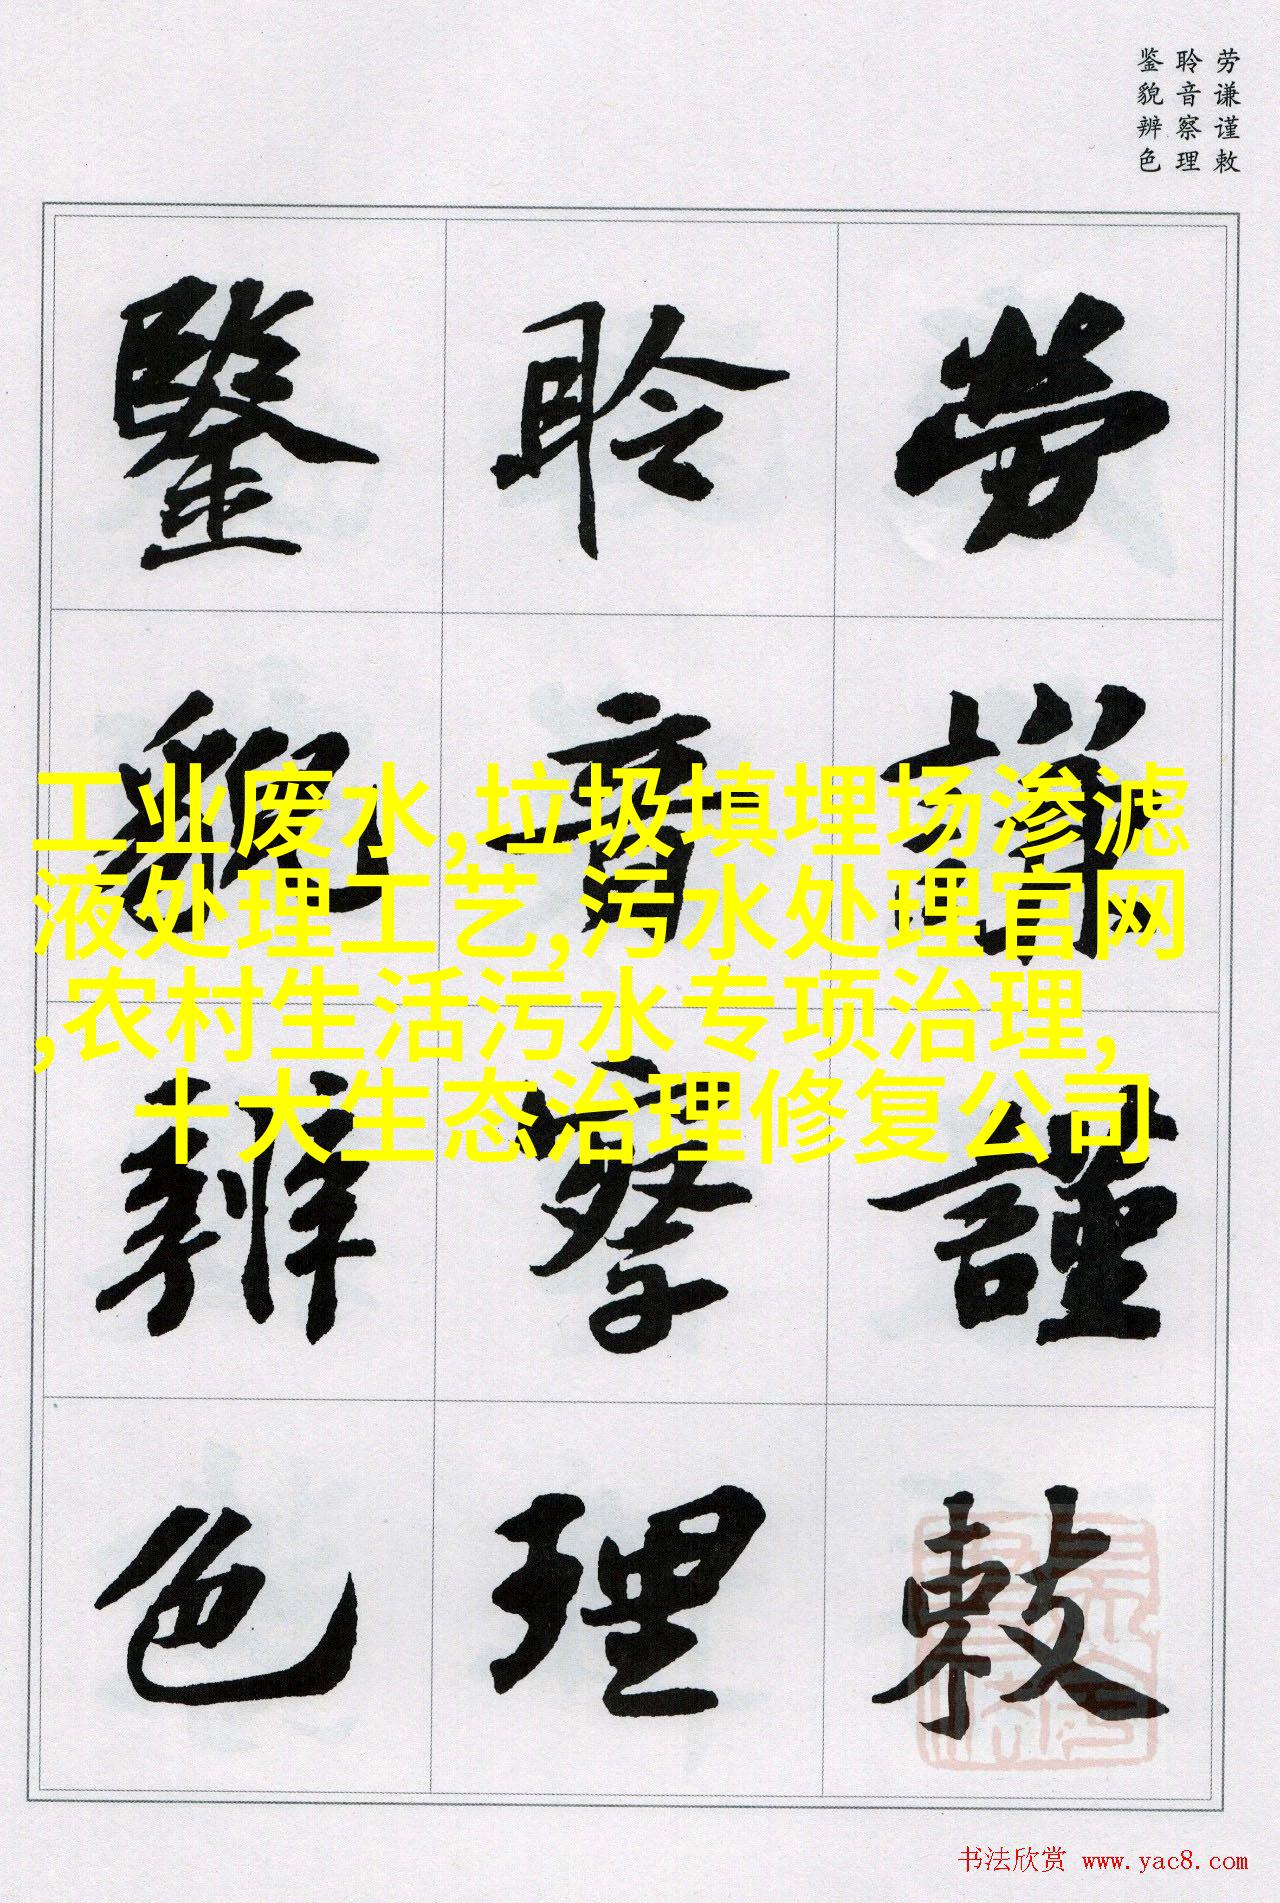 劳谦谨敕
聆音察理
鉴貌辨色
勞謙謹敕
聆音察理
鑒貌辨色
工业废水,垃圾填埋场渗滤
液处理工艺,污水处理官网
,农村生活污水专项治理,
十大生态治理修复公司
书法欣赏 www.yac8.com